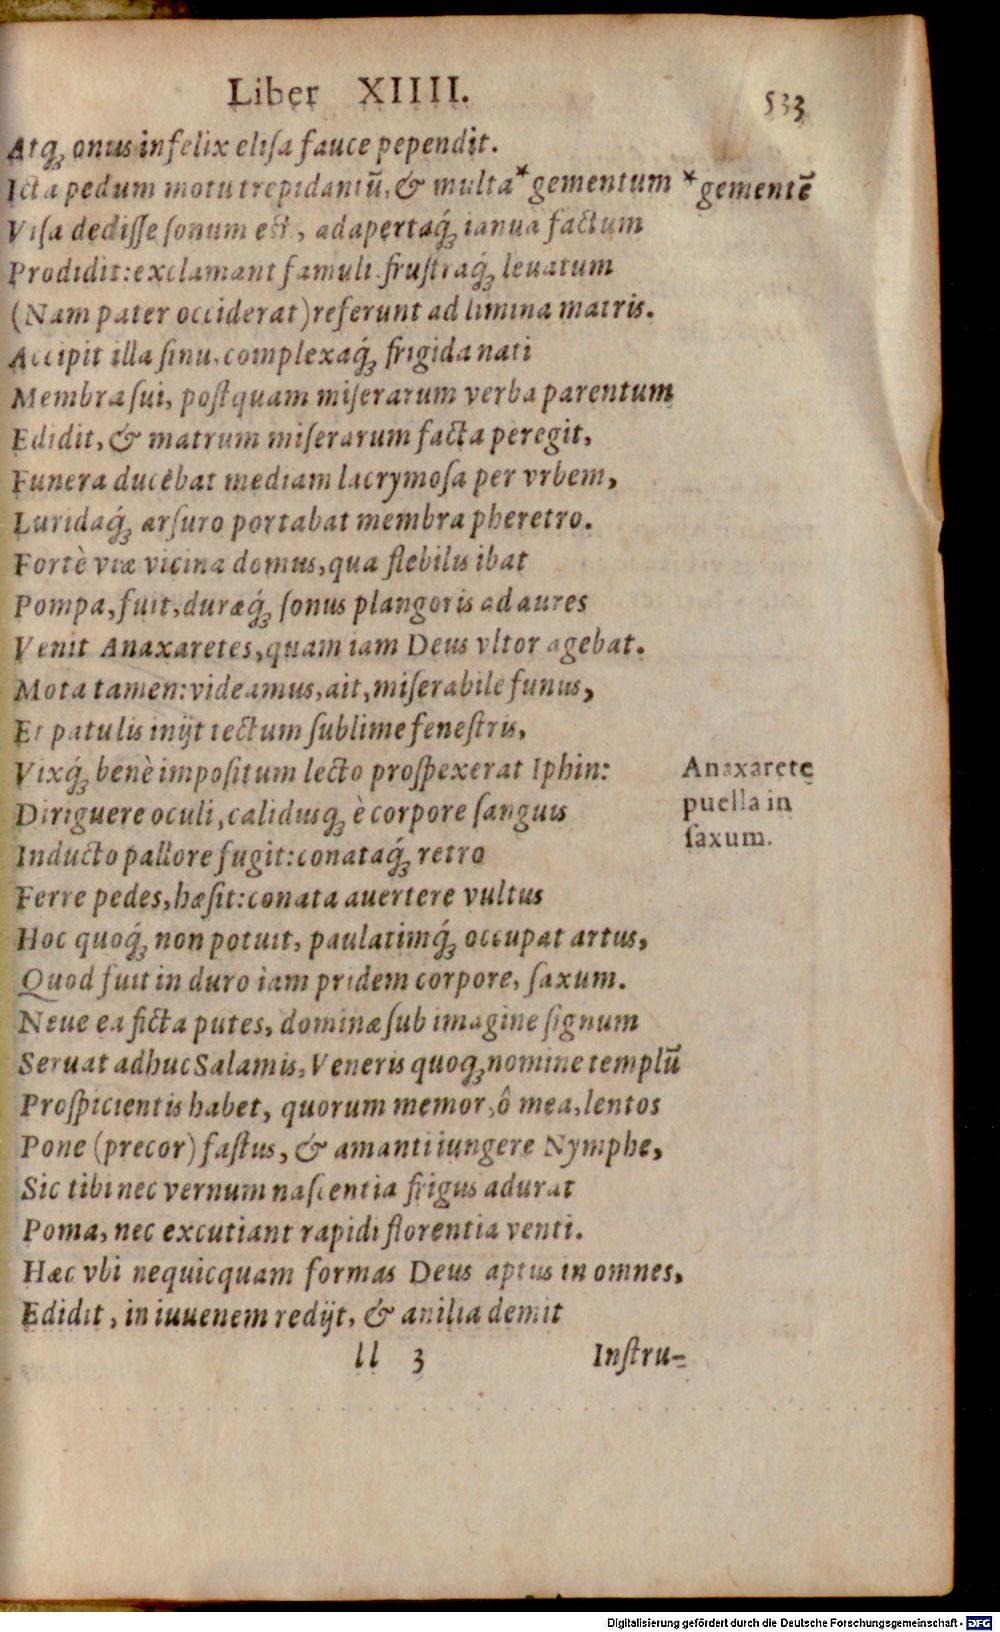 Liber XIIII. 533
Atq́ꝫ onus infelix eliſa fauce pependit.
Icta pedum motu trepidantũ, & multa * gementum * gementẽ
Viſa dediſſe ſonum eſt, adapertaq́ꝫ ianua factum
Prodidit: exclamant famuli, fruſtraq́ꝫ leuatum
(Nam pater occiderat) referunt ad limina matris.
Accipit illa ſinu, complexaq́ꝫ frigida nati
Membra ſui, poſtquam miſerarum verba parentum
Edidit, & matrum miſerarum facta peregit,
Funera ducebat mediam lacrymoſa per vrbem,
Luridaq́ꝫ arſuro portabat membra pheretro.
Fortè viæ vicina domus, qua flebilis ibat
Pompa, fuit, duræq́ꝫ ſonus plangoris ad aures
Venit Anaxaretes, quam iam Deus vltor agebat.
Mota tamen: videamus, ait, miſerabile funus,
Et patulis inijt tectum ſublime feneſtris,
Vixq́ꝫ benè impoſitum lecto proſpexerat Iphin:
Anaxarete
puella in
ſaxum.
Diriguere oculi, calidusqꝫ è corpore ſanguis
Inducto pallore fugit: conataq́ꝫ retro
Ferre pedes, hæſit: conata auertere vultus
Hoc quoq́ꝫ non potuit, paulatimq́ꝫ occupat artus,
Quod fuit in duro iam pridem corpore, ſaxum.
Neue ea ficta putes, dominæ ſub imagine ſignum
Seruat adhuc Salamis, Veneris quoqꝫ nomine templũ
Proſpicientis habet, quorum memor, ô mea, lentos
Pone (precor) faſtus, & amanti iungere Nymphe,
Sic tibi nec vernum naſcentia frigus adurat
Poma, nec excutiant rapidi florentia venti.
Hæc vbi nequicquam formas Deus aptus in omnes,
Edidit, in iuuenem redijt, & anilia demit
ll 3 Inſtru-
Digitalisierung gefördert durch die Deutsche Forschungsgemeinschaft - DFG